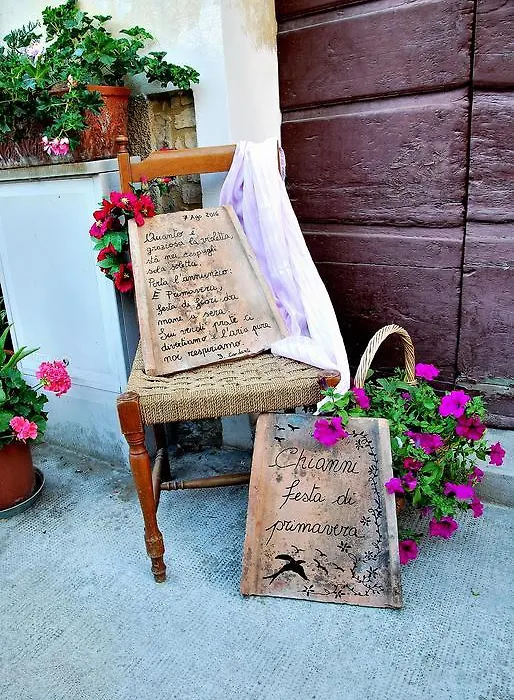 7 Ago. 2016
Quanto è
graziosa la violetta,
stà nei cespugli
sola soletta.
Porta l'annunzio:
È Primavera,
festa di fiori da
mane a sera!
Sui verdi prati ci
divertiamo l'aria pura
noi respiriamo.
Chianni
festa di
primavera